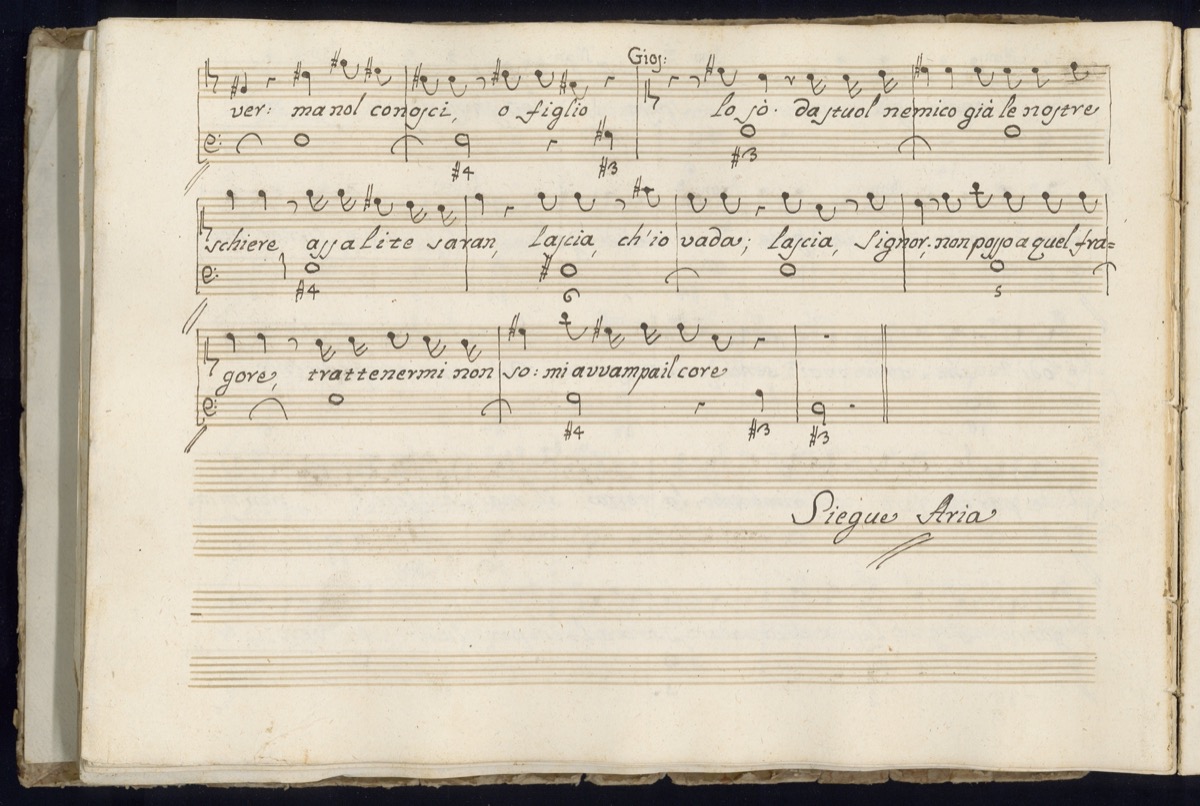 Gios:
ver: ma nol conosci, o figlio lo sò. da stuol nemico già le nostre
#4 #3 #3
schiere assalite saran, lascia, ch'io vada; lascia, Signor; non posso a quel fra=
#4 6 5
gore, trattenermi non so: mi avvampa il core
#4 #3 #3
Siegue Aria